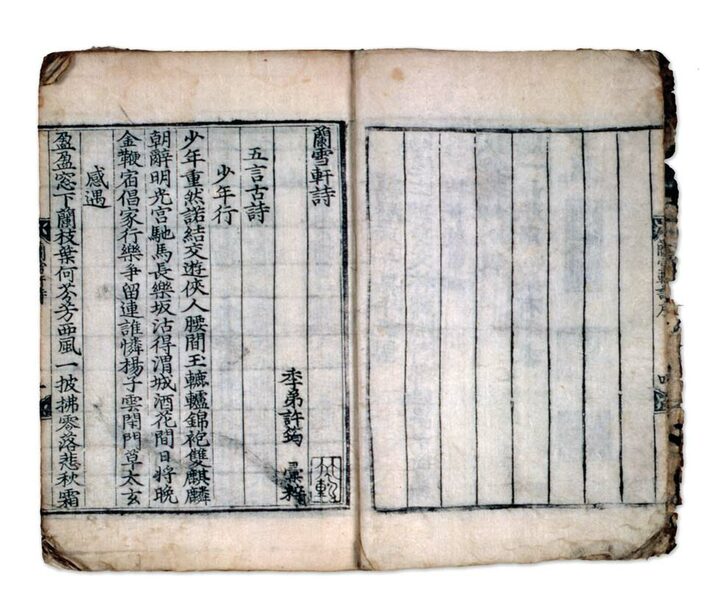 蘭雪軒詩
季弟許筠 彙粹
五言古詩
少年行
少年重然諾結交遊俠人腰間玉轆轤錦袍雙麒麟
朝辭明光宮馳馬長樂坂沽得渭城酒花間日將晚
金鞭宿倡家行樂爭留連誰憐楊子雲閉門草太玄
感遇
盈盈窓下蘭枝葉何芬芳西風一披拂零落悲秋霜